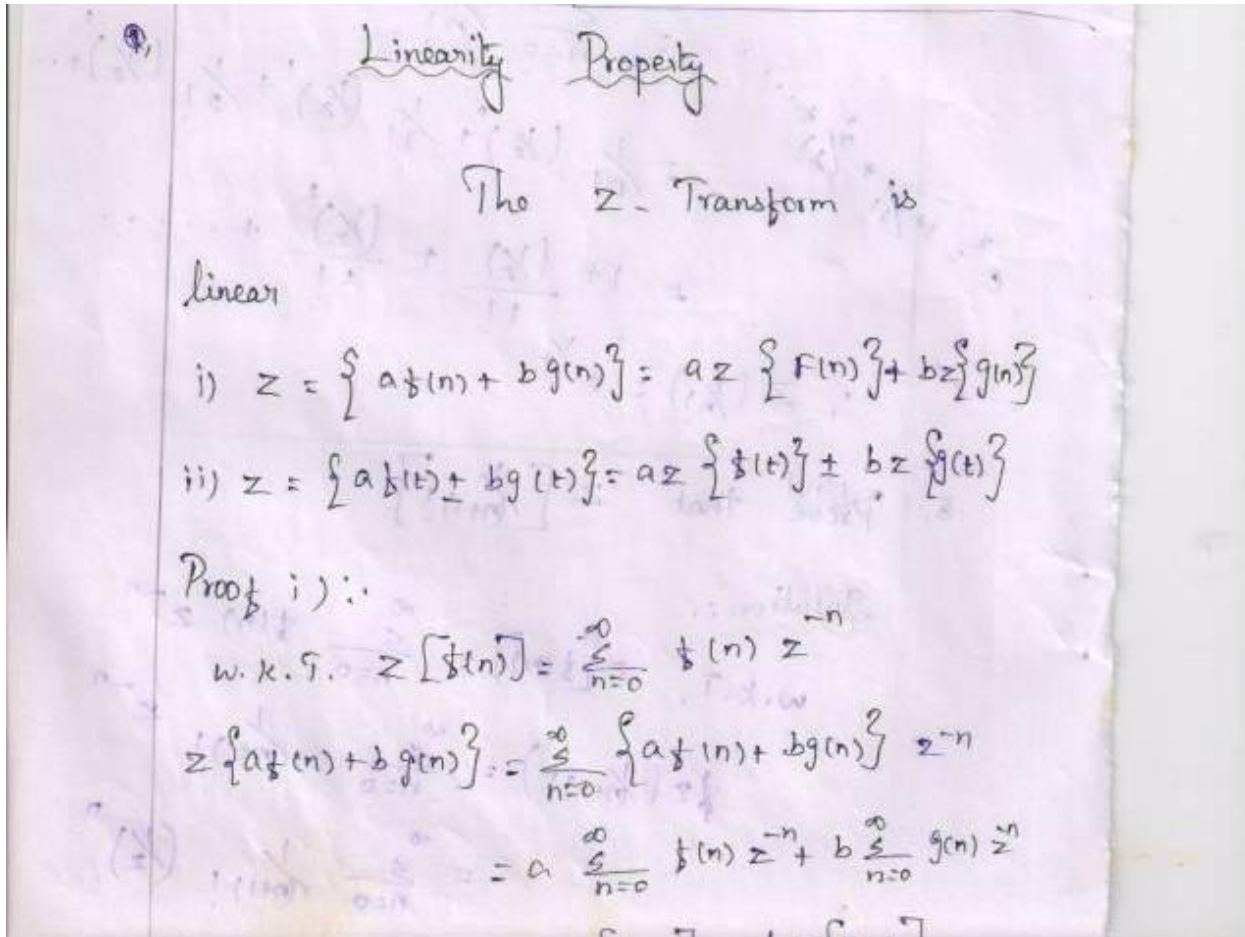 9,
Linearity Property
The z- Transform is
linear
i) z = { a f(n) + b g(n)} = a z { F(n) } + bz{g(n)}
ii) z = { a f(t) ± bg (t)} = a z { f(t)} ± b z {g(t)}
Proof i) :.
w.k.T. z [f(n)] = ∞ Σ n=0 f(n) z^-n
z {af(n) + b g(n)} = ∞ Σ n=0 {af(n) + bg(n)} z^-n
= a ∞ Σ n=0 f(n) z^-n + b ∞ Σ n=0 g(n) z^-n